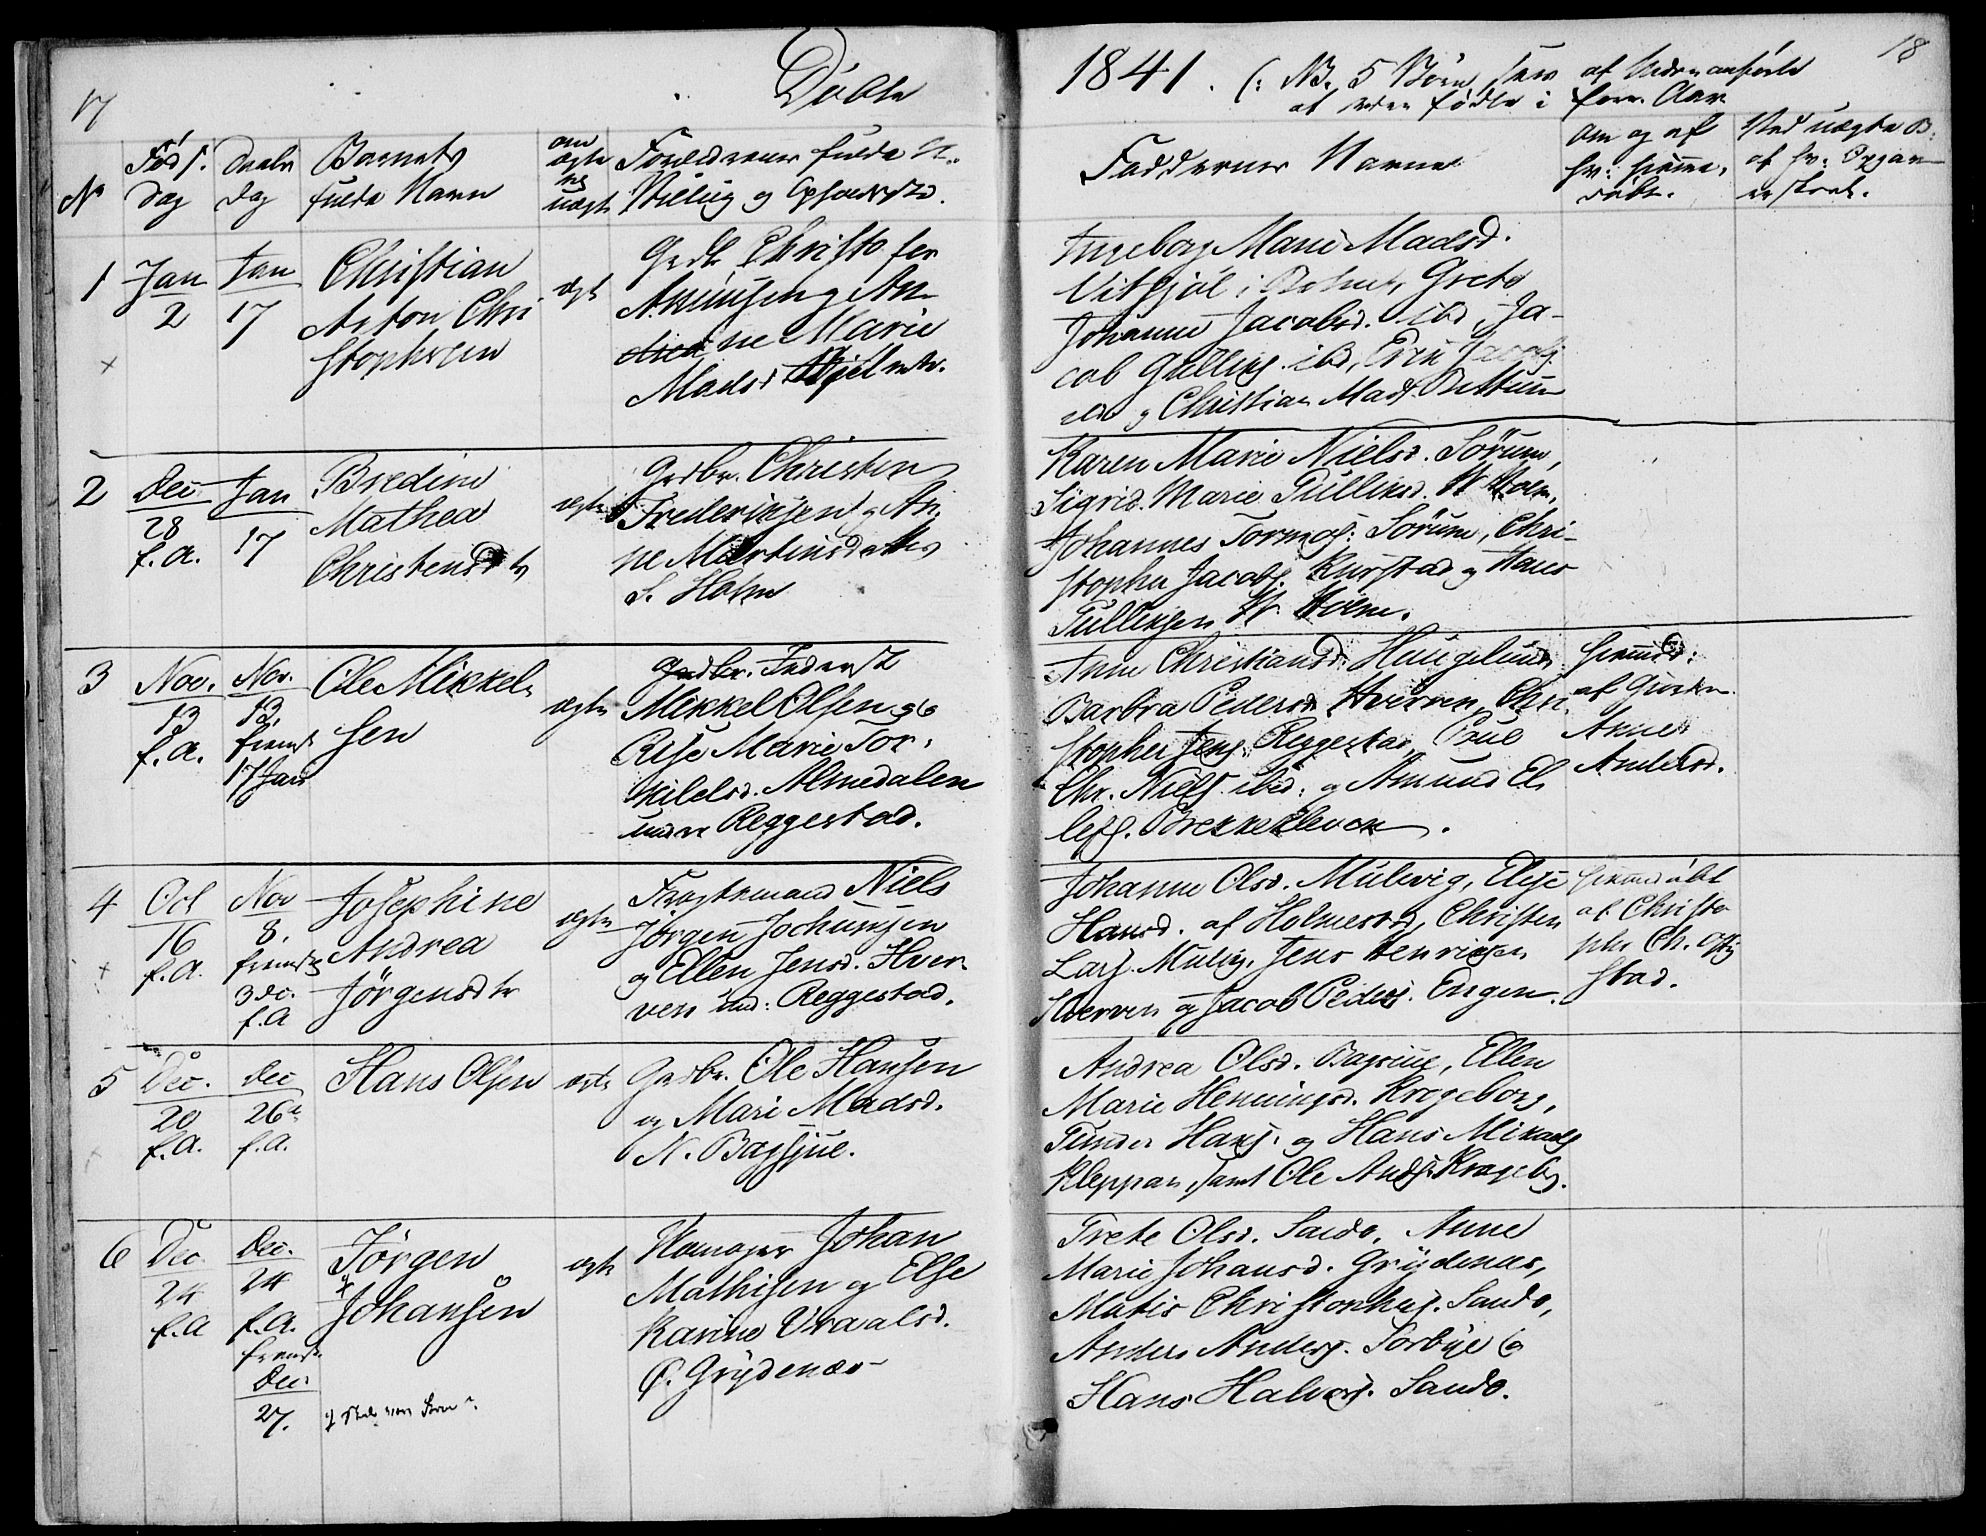 17
Döbte
1841. (: NB. 5 Börn af
at være födte i forr. Aar.
18
No
Föds.
Dag
Daabs
dag
Barnets
fulde Navn
om
ægte
el.
uægte
Forældrenes fulde N.
Stilling og Opholdsted.
Faddernes Navne
om og af
hv: hjemme-
döbt.
Ved uægte B:
af hv: Opgav
er skeet.
1
Jan
2
Jan
17
Christian
Anton Chri
stophersen
ægte
Grdb. Christofer
Amundsen og An-
ne Marie
Madsd.
Ingeborg Marie Madsd.
Grete
Johanne Jacobsd. ibd, Ja-
cob Gulliks. ibd, Even Jacobs.
og Christian Mads.
2
Dec
28
f.A.
Jan
17
Bredine
Mathea
Christensdtr
ægte
Grdbr. Christen
Frederiksen og An-
ne Martinsdatter
S. Holm
Karen Marie Nielsd. Sörum,
Sigrid Marie Gulliksd. N. Holm,
Johannes Tormods: Sörum, Chri-
stopher Jacobs. og Hans
Gulliksen N. Holm.
3
Nov.
13
f.A.
Nov.
13,
fremst
17 Jan
Ole Mikkel-
sen
ægte
Inderst
Mikkel Olsen og
Else Marie Tor-
kildsd. Almedalen
under Reggestad.
Anne Christiansd. Haugelund,
Barbra Pedersd. Hverven, Chri-
stopher Jens. Reggestad, Poul
Chr. Niels. ibid: og Amund El-
lefs. Brekkekleven.
Hjemmed:
af Qvinden
Anne
Andersd.
4
Oct
16
f.A.
Nov
8.
fremst
3 Dc.
f.A
Josephine
Andrea
Jörgensdtr
ægte
Fragtemand Niels
Jörgen Jochumsen
og Ellen Jensd. Hver-
ven und: Reggestad.
Johanne Olsd. Mulvig, Else
Hansd. af Holmestrd, Christen
Lars. Mulvig, Jens Henriksen
Hverven og Jacob Peders. Engen.
hjemmedöbt
af Christo
pher Ch.
stad.
5
Dec.
20
f.A.
Dec
26
f.A.
Hans Olsen
ægte
Grdbr. Ole Hansen
og Mari Madsd.
N. Bagsjue.
Andrea Olsd. Bagsjue, Ellen
Marie Henningsd. Krogeborg,
Gunder Hans. og Hans Mikaels
Kleppan, samt Ole Ands. Krogebg.
6
Dec.
24
f.A
Dec.
24
f.A.
fremst.
Dec
27.
Jörgen
Johansen
ægte
Johan
Mathisen og Else
Karine Vraalsd.
Ö. Grydenæs
Grete Olsd. Sando, Anne
Marie Johansd. Grydenæs,
Matis Christophers. Sando,
Anders Anders. Torbye og
Hans Halvors. Sando.